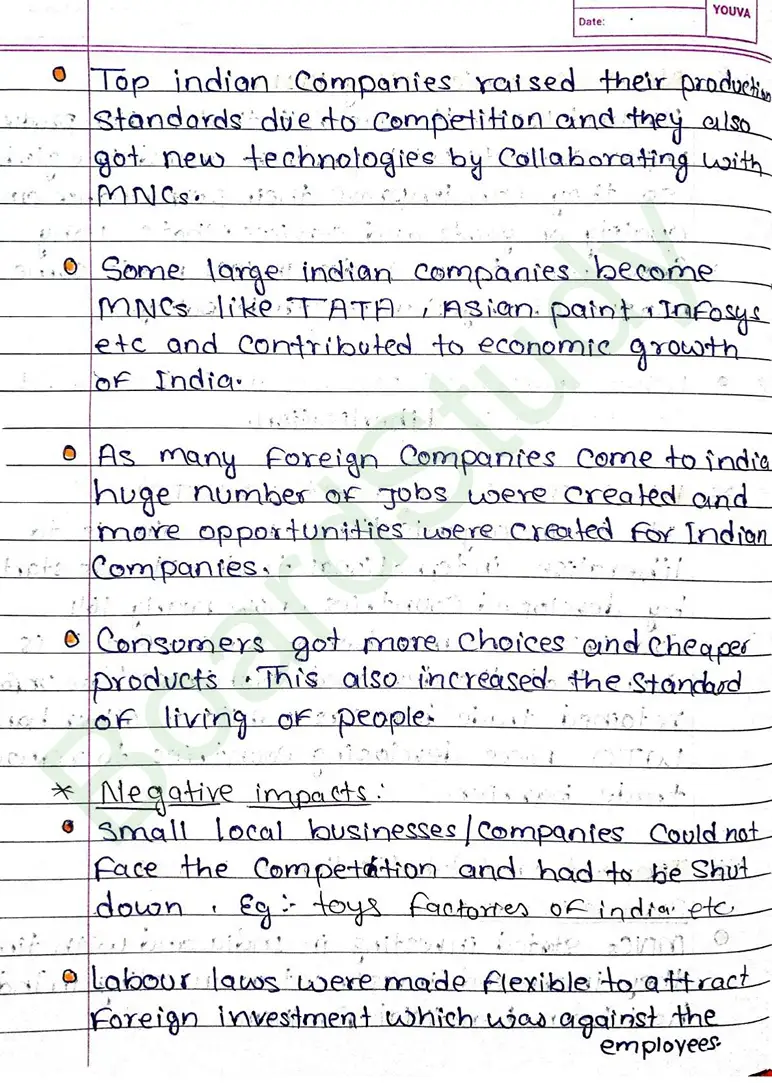 YOUVA
Date:
Top indian Companies raised their production
Standards due to competition and they also
got new technologies by Collaborating with
MNCs.
Some large indian companies become
MNCs like TATA, Asian paint, Infosys
etc and contributed to economic growth
of India.
As many foreign Companies come to india
huge number of Jobs were created and
more opportunities were created for Indian
Companies.
Consumers got more choices and cheaper
products. This also increased the standard
of living of people.
* Negative impacts:
Small local businesses/companies Could not
Face the Competition and had to be Shut
down. Eg:- toys factories of india etc
Labour laws were made flexible to attract
Foreign investment which was against the
employees.
BoardStudy